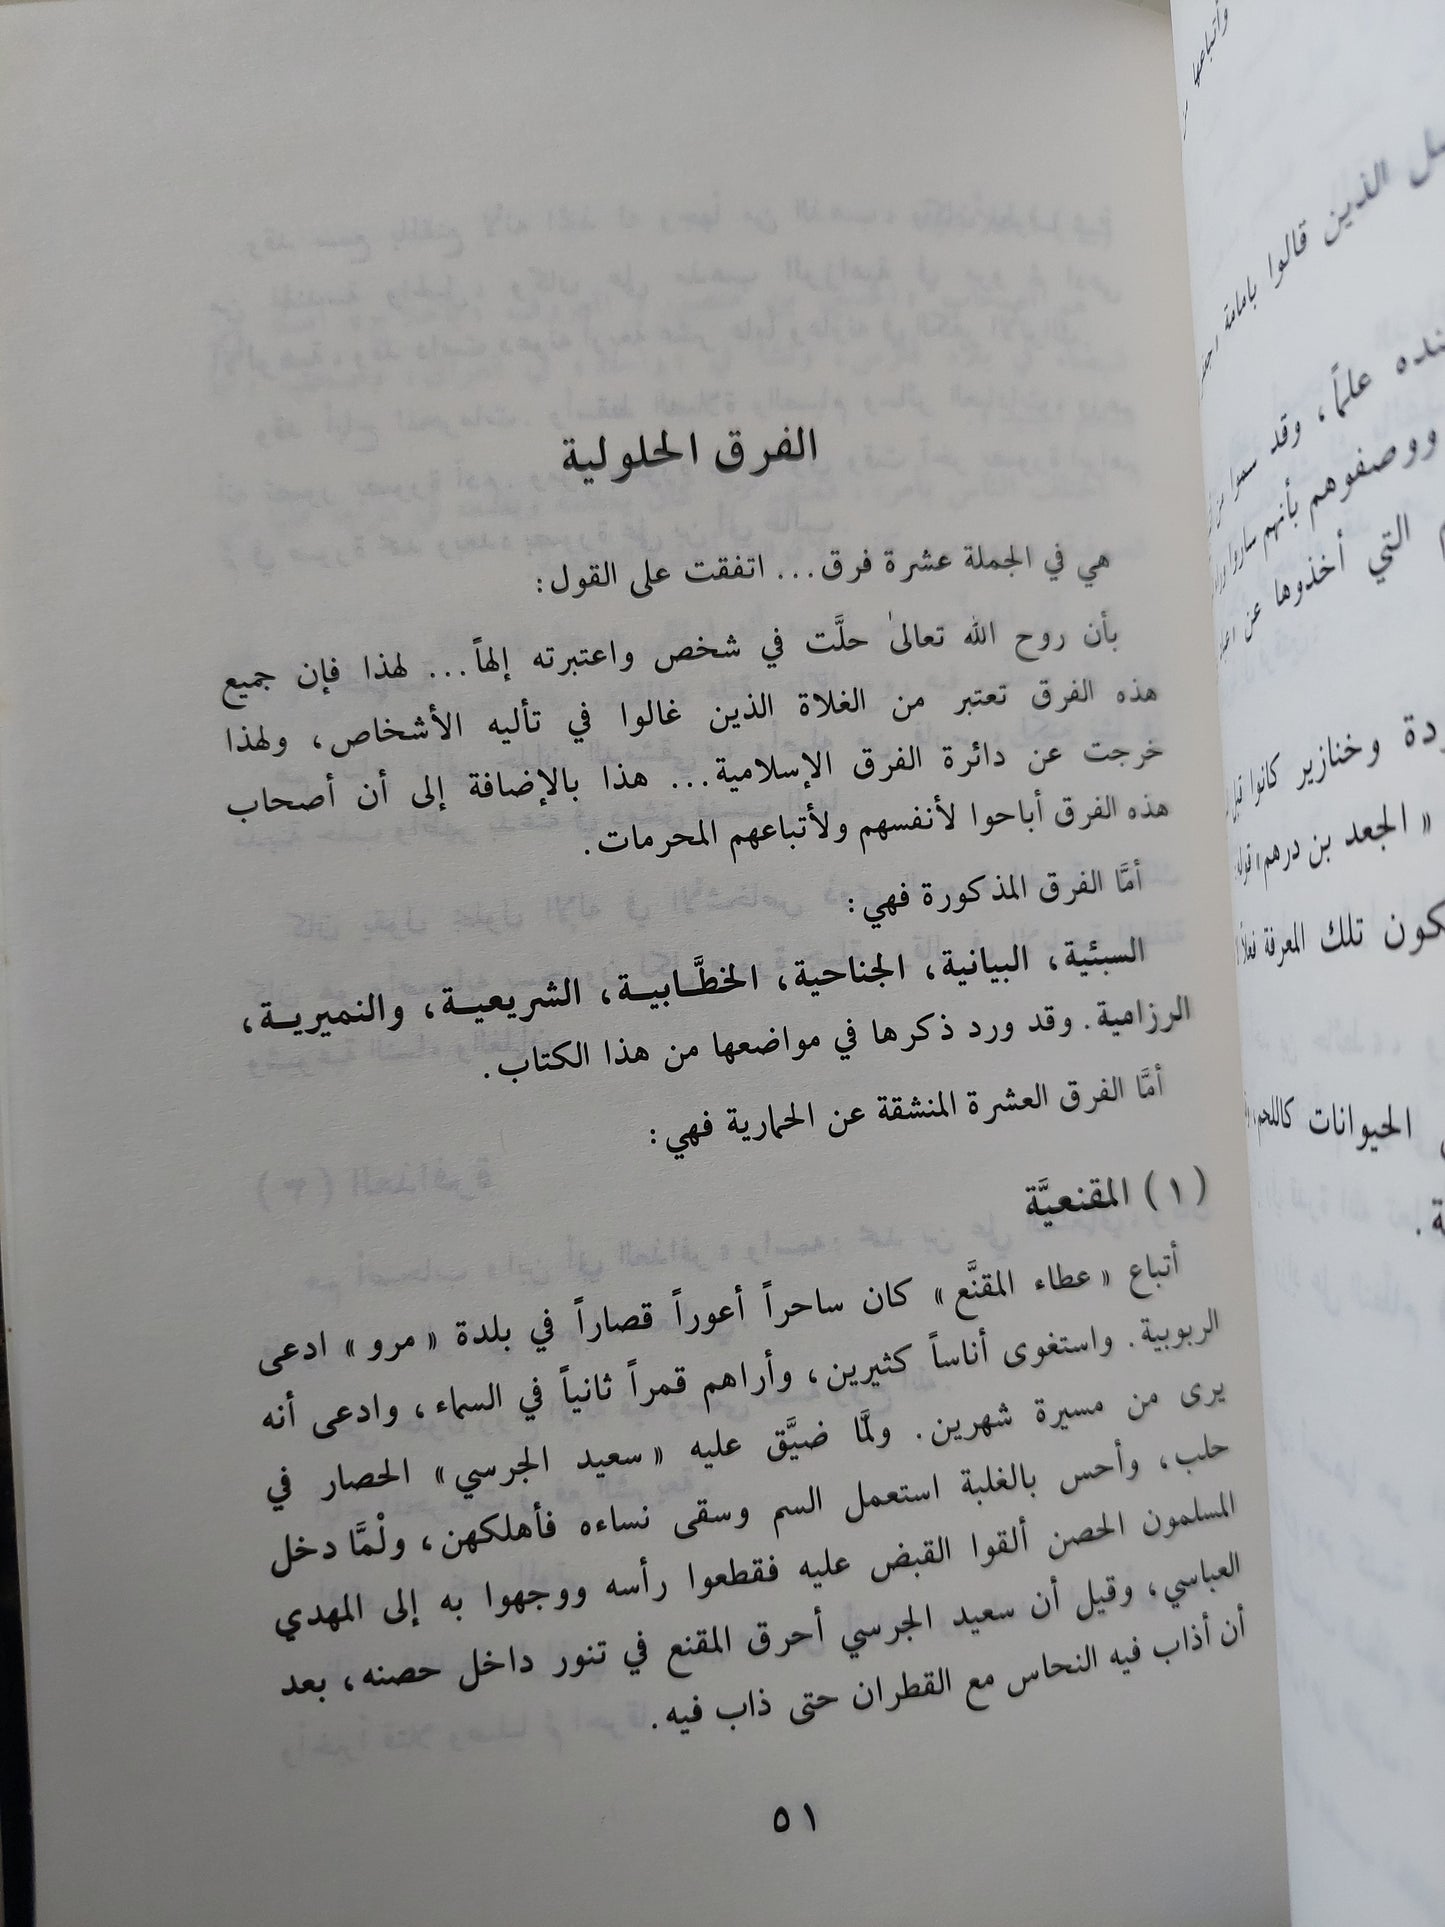 الفرق الحلولية
هي في الجملة عشرة فرق... اتفقت على القول:
بأن روح الله تعالىٰ حلَّت في شخص واعتبرته إلهاً... لهذا فإن جميع
هذه الفرق تعتبر من الغلاة الذين غالوا في تأليه الأشخاص، ولهذا
خرجت عن دائرة الفرق الإسلامية... هذا بالإضافة إلى أن أصحاب
هذه الفرق أباحوا لأنفسهم ولأتباعهم المحرمات.
أمَّا الفرق المذكورة فهي:
السبئية، البيانية، الجناحية، الخطَّـابيـة، الشريعيـة، والنميريـة،
الرزامية. وقد ورد ذكرها في مواضعها من هذا الكتاب.
أمَّا الفرق العشرة المنشقة عن الحمارية فهي:
(١) المقنعيَّة
أتباع «عطاء المقنَّع» كان ساحراً أعوراً قصاراً في بلدة «مرو» ادعى
الربوبية. واستغوى أناساً كثيرين، وأراهم قمراً ثانياً في السماء، وادعى أنه
يرى من مسيرة شهرين. ولمَّا ضيَّق عليه «سعيد الجرسي» الحصار في
حلب، وأحس بالغلبة استعمل السم وسقى نساءه فأهلكهن، ولْمَّا دخل
المسلمون الحصن ألقوا القبض عليه فقطعوا رأسه ووجهوا به إلى المهدي
العباسي، وقيل أن سعيد الجرسي أحرق المقنع في تنور داخل حصنه، بعد
أن أذاب فيه النحاس مع القطران حتى ذاب فيه.
٥١
وأتباعها
الذين قالوا بامامة
علماً، وقد سموا من
ووصفوهم بأنهم ساروا
التي أخذوها عن
وخنازير كانوا قبل
«الجعد بن درهم» قوله
تلك المعرفة فعلاً
الحيوانات كاللحم